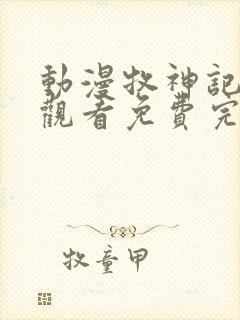 動漫牧神記
觀看免費完
牧童甲